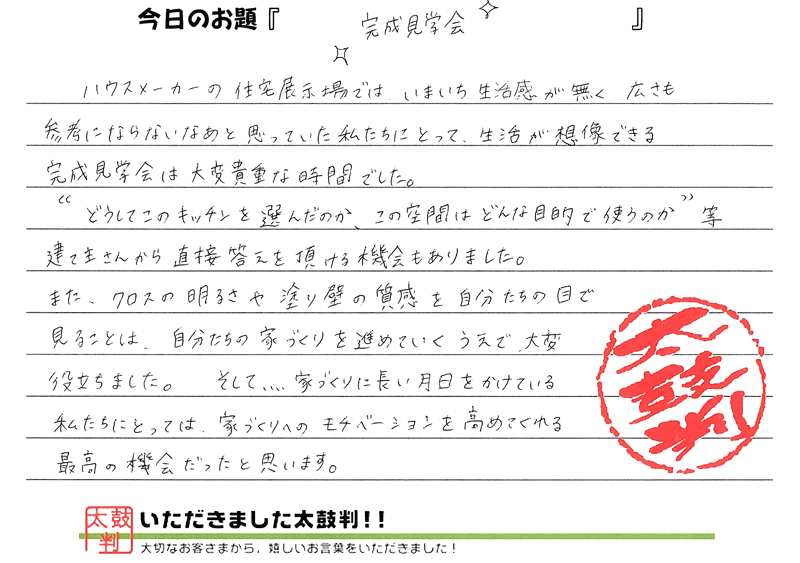 今日のお題『 完成見学会 』
ハウスメーカーの住宅展示場では、いまいち生活感が無く、広さも
参考にならないなあと思っていた私たちにとって、生活が想像できる
完成見学会は大変貴重な時間でした。
“どうしてこのキッチンを選んだのか、この空間はどんな目的で使うのか”等
建て主さんから直接答えを頂ける機会もありました。
また、クロスの明るさや塗り壁の質感を自分たちの目で
見ることは、自分たちの家づくりを進めていくうえで、大変
役立ちました。 そして、、、、家づくりに長い月日をかけている
私たちにとっては、家づくりへのモチベーションを高めてくれる
最高の機会だったと思います。
太鼓判
太鼓判 いただきました太鼓判!!
大切なお客さまから、嬉しいお言葉をいただきました!